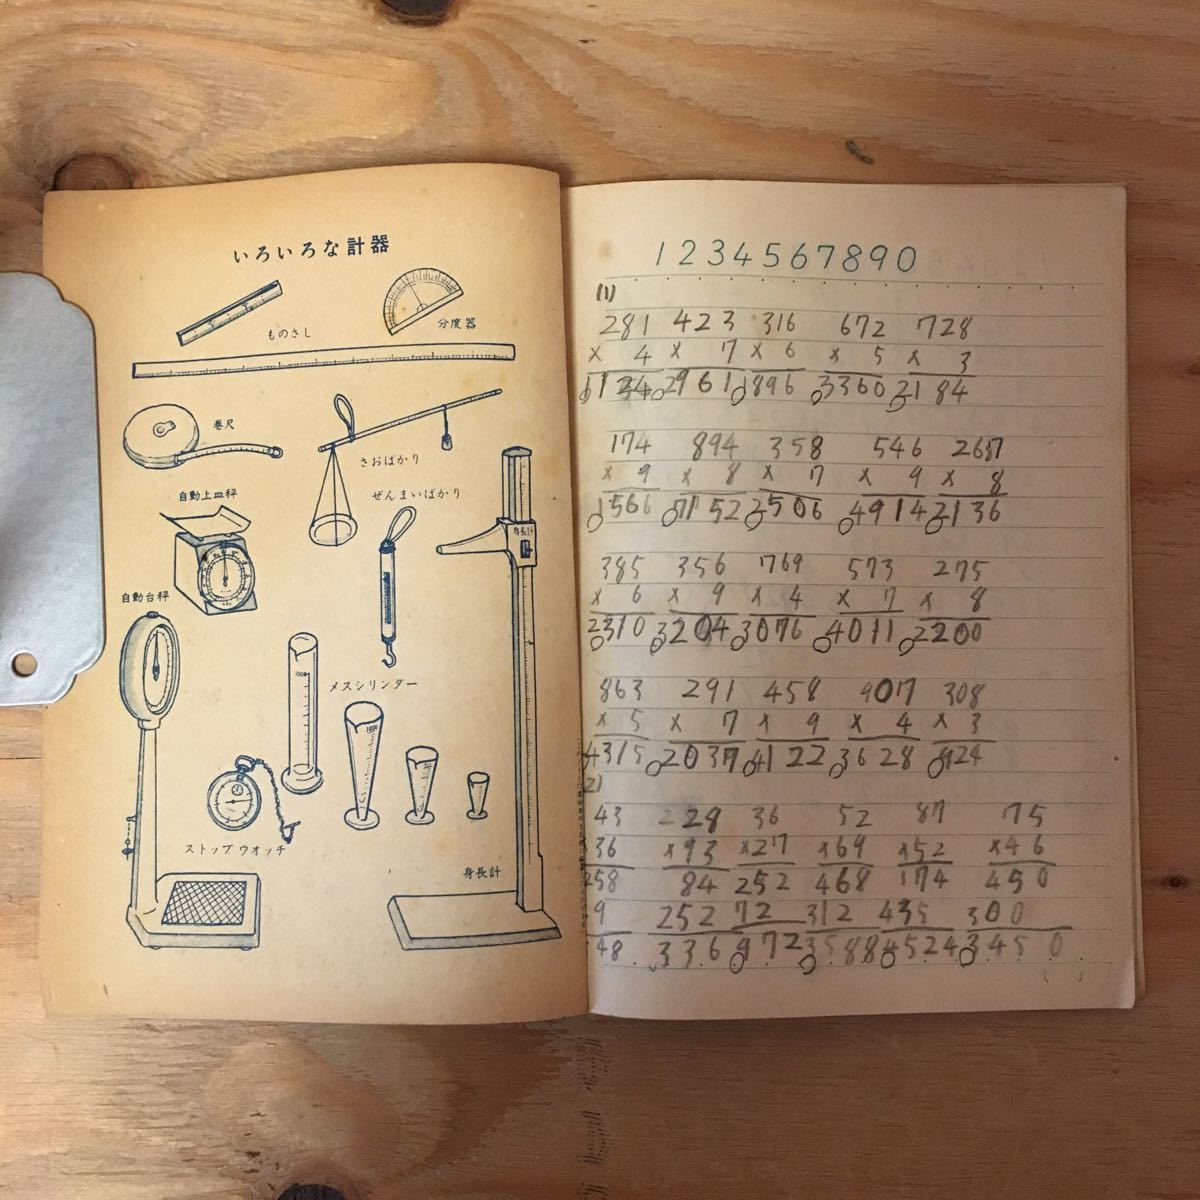 いろいろな計器
ものさし
分度器
巻尺
さおばかり
自動上皿秤
ぜんまいばかり
身長計
自動台秤
1000
メスシリンダー
1000
ストップウオッチ
身長計
1234567890
(1)
281 423 316 672 728
× 4 × 7 × 6 × 5 × 3
1124 2961 1896 3360 2184
174 894 358 546 267
× 9 × 8 × 7 × 9 × 8
1566 7152 2506 4914 2136
385 356 769 573 275
× 6 × 9 × 4 × 7 × 8
2310 3204 3076 4011 2200
863 291 458 907 308
× 5 × 7 × 9 × 4 × 3
4315 2037 4122 3628 924
2)
43 28 36 52 87 75
36 ×93 ×27 ×69 ×52 ×46
258 84 252 468 174 450
9 252 72 312 435 300
48 336 972 3588 4524 3450
( )